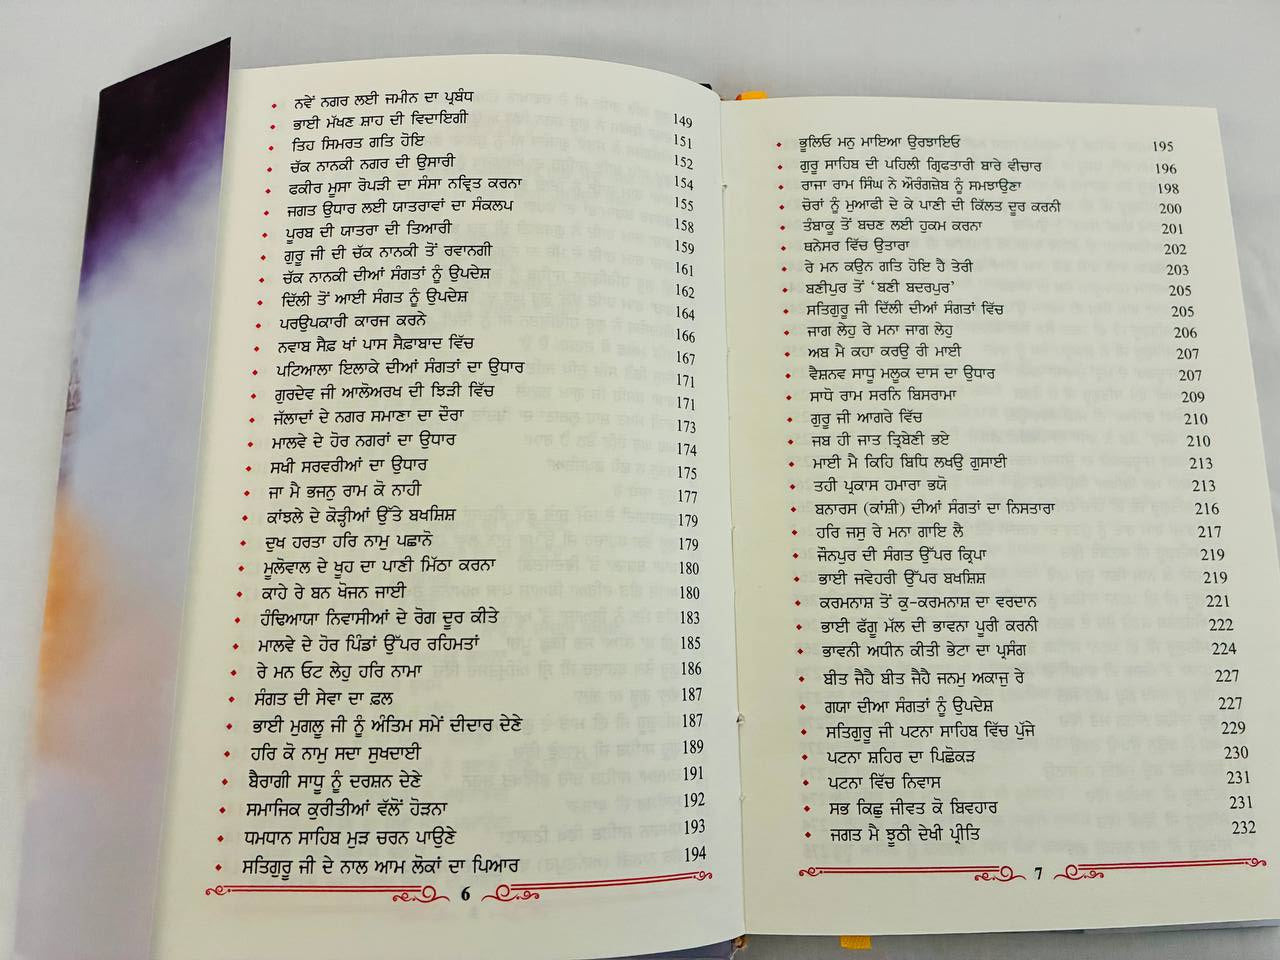 • ਨਵੇਂ ਨਗਰ ਲਈ ਜਮੀਨ ਦਾ ਪ੍ਰਬੰਧ 149
• ਭਾਈ ਮੱਖਣ ਸ਼ਾਹ ਦੀ ਵਿਦਾਇਗੀ 151
• ਤਿਹ ਸਿਮਰਤ ਗਤਿ ਹੋਇ 152
• ਚੱਕ ਨਾਨਕੀ ਨਗਰ ਦੀ ਉਸਾਰੀ 154
• ਫਕੀਰ ਮੂਸਾ ਰੋਪੜੀ ਦਾ ਸੰਸਾ ਨਵ੍ਰਿਤ ਕਰਨਾ 155
• ਜਗਤ ਉਧਾਰ ਲਈ ਯਾਤਰਾਵਾਂ ਦਾ ਸੰਕਲਪ 158
• ਪੂਰਬ ਦੀ ਯਾਤਰਾ ਦੀ ਤਿਆਰੀ 159
• ਗੁਰੂ ਜੀ ਦੀ ਚੱਕ ਨਾਨਕੀ ਤੋਂ ਰਵਾਨਗੀ 161
• ਚੱਕ ਨਾਨਕੀ ਦੀਆਂ ਸੰਗਤਾਂ ਨੂੰ ਉਪਦੇਸ਼ 162
• ਦਿੱਲੀ ਤੋਂ ਆਈ ਸੰਗਤ ਨੂੰ ਉਪਦੇਸ਼ 164
• ਪਰਉਪਕਾਰੀ ਕਾਰਜ ਕਰਨੇ 166
• ਨਵਾਬ ਸੈਫ਼ ਖਾਂ ਪਾਸ ਸੈਫ਼ਾਬਾਦ ਵਿੱਚ 167
• ਪਟਿਆਲਾ ਇਲਾਕੇ ਦੀਆਂ ਸੰਗਤਾਂ ਦਾ ਉਧਾਰ 171
• ਗੁਰਦੇਵ ਜੀ ਆਲੋਅਰਖ ਦੀ ਝਿੜੀ ਵਿੱਚ 171
• ਜੱਲਾਦਾਂ ਦੇ ਨਗਰ ਸਮਾਣਾ ਦਾ ਦੌਰਾ 173
• ਮਾਲਵੇ ਦੇ ਹੋਰ ਨਗਰਾਂ ਦਾ ਉਧਾਰ 174
• ਸਖੀ ਸਰਵਰੀਆਂ ਦਾ ਉਧਾਰ 175
• ਜਾ ਮੈ ਭਜਨੁ ਰਾਮ ਕੋ ਨਾਹੀ 177
• ਕਾਂਝਲੇ ਦੇ ਕੋੜ੍ਹੀਆਂ ਉੱਤੇ ਬਖਸ਼ਿਸ਼ 179
• ਦੁਖ ਹਰਤਾ ਹਰਿ ਨਾਮੁ ਪਛਾਨੋ 179
• ਮੂਲੋਵਾਲ ਦੇ ਖੂਹ ਦਾ ਪਾਣੀ ਮਿੱਠਾ ਕਰਨਾ 180
• ਕਾਹੇ ਰੇ ਬਨ ਖੋਜਨ ਜਾਈ 180
• ਹੰਢਿਆਯਾ ਨਿਵਾਸੀਆਂ ਦੇ ਰੋਗ ਦੂਰ ਕੀਤੇ 183
• ਮਾਲਵੇ ਦੇ ਹੋਰ ਪਿੰਡਾਂ ਉੱਪਰ ਰਹਿਮਤਾਂ 185
• ਰੇ ਮਨ ਓਟ ਲੇਹੁ ਹਰਿ ਨਾਮਾ 186
• ਸੰਗਤ ਦੀ ਸੇਵਾ ਦਾ ਫ਼ਲ 187
• ਭਾਈ ਮੁਗਲੂ ਜੀ ਨੂੰ ਅੰਤਿਮ ਸਮੇਂ ਦੀਦਾਰ ਦੇਣੇ 187
• ਹਰਿ ਕੋ ਨਾਮੁ ਸਦਾ ਸੁਖਦਾਈ 189
• ਬੈਰਾਗੀ ਸਾਧੂ ਨੂੰ ਦਰਸ਼ਨ ਦੇਣੇ 191
• ਸਮਾਜਿਕ ਕੁਰੀਤੀਆਂ ਵੱਲੋਂ ਹੋੜਨਾ 192
• ਧਮਧਾਨ ਸਾਹਿਬ ਮੁੜ ਚਰਨ ਪਾਉਣੇ 193
• ਸਤਿਗੁਰੂ ਜੀ ਦੇ ਨਾਲ ਆਮ ਲੋਕਾਂ ਦਾ ਪਿਆਰ 194
6
• ਭੂਲਿਓ ਮਨੁ ਮਾਇਆ ਉਰਝਾਇਓ 195
• ਗੁਰੂ ਸਾਹਿਬ ਦੀ ਪਹਿਲੀ ਗ੍ਰਿਫਤਾਰੀ ਬਾਰੇ ਵੀਚਾਰ 196
• ਰਾਜਾ ਰਾਮ ਸਿੰਘ ਨੇ ਔਰੰਗਜ਼ੇਬ ਨੂੰ ਸਮਝਾਉਣਾ 198
• ਚੋਰਾਂ ਨੂੰ ਮੁਆਫੀ ਦੇ ਕੇ ਪਾਣੀ ਦੀ ਕਿੱਲਤ ਦੂਰ ਕਰਨੀ 200
• ਤੰਬਾਕੂ ਤੋਂ ਬਚਣ ਲਈ ਹੁਕਮ ਕਰਨਾ 201
• ਥਨੇਸਰ ਵਿੱਚ ਉਤਾਰਾ 202
• ਰੇ ਮਨ ਕਉਨ ਗਤਿ ਹੋਇ ਹੈ ਤੇਰੀ 203
• ਬਣੀਪੁਰ ਤੋਂ ‘ਬਣੀ ਬਦਰਪੁਰ’ 205
• ਸਤਿਗੁਰੂ ਜੀ ਦਿੱਲੀ ਦੀਆਂ ਸੰਗਤਾਂ ਵਿੱਚ 205
• ਜਾਗ ਲੇਹੁ ਰੇ ਮਨਾ ਜਾਗ ਲੇਹੁ 206
• ਅਬ ਮੈ ਕਹਾ ਕਰਉ ਰੀ ਮਾਈ 207
• ਵੈਸ਼ਨਵ ਸਾਧੂ ਮਲੂਕ ਦਾਸ ਦਾ ਉਧਾਰ 207
• ਸਾਧੋ ਰਾਮ ਸਰਨਿ ਬਿਸਰਾਮਾ 209
• ਗੁਰੂ ਜੀ ਆਗਰੇ ਵਿੱਚ 210
• ਜਬ ਹੀ ਜਾਤ ਤ੍ਰਿਬੇਣੀ ਭਏ 210
• ਮਾਈ ਮੈ ਕਿਹਿ ਬਿਧਿ ਲਖਉ ਗੁਸਾਈ 213
• ਤਹੀ ਪ੍ਰਕਾਸ ਹਮਾਰਾ ਭਯੋ 213
• ਬਨਾਰਸ (ਕਾਂਸ਼ੀ) ਦੀਆਂ ਸੰਗਤਾਂ ਦਾ ਨਿਸਤਾਰਾ 216
• ਹਰਿ ਜਸੁ ਰੇ ਮਨਾ ਗਾਇ ਲੈ 217
• ਜੌਨਪੁਰ ਦੀ ਸੰਗਤ ਉੱਪਰ ਕ੍ਰਿਪਾ 219
• ਭਾਈ ਜਵੇਹਰੀ ਉੱਪਰ ਬਖਸ਼ਿਸ਼ 219
• ਕਰਮਨਾਸ਼ ਤੋਂ ਕੁ-ਕਰਮਨਾਸ਼ ਦਾ ਵਰਦਾਨ 221
• ਭਾਈ ਫੱਗੂ ਮੱਲ ਦੀ ਭਾਵਨਾ ਪੂਰੀ ਕਰਨੀ 222
• ਭਾਵਨੀ ਅਧੀਨ ਕੀਤੀ ਭੇਟਾ ਦਾ ਪ੍ਰਸੰਗ 224
• ਬੀਤ ਜੈਹੈ ਬੀਤ ਜੈਹੈ ਜਨਮੁ ਅਕਾਜੁ ਰੇ 227
• ਗਯਾ ਦੀਆਂ ਸੰਗਤਾਂ ਨੂੰ ਉਪਦੇਸ਼ 227
• ਸਤਿਗੁਰੂ ਜੀ ਪਟਨਾ ਸਾਹਿਬ ਵਿੱਚ ਪੁੱਜੇ 229
• ਪਟਨਾ ਸ਼ਹਿਰ ਦਾ ਪਿਛੋਕੜ 230
• ਪਟਨਾ ਵਿੱਚ ਨਿਵਾਸ 231
• ਸਭ ਕਿਛੁ ਜੀਵਤ ਕੋ ਬਿਵਹਾਰ 231
• ਜਗਤ ਮੈ ਝੂਠੀ ਦੇਖੀ ਪ੍ਰੀਤਿ 232
7